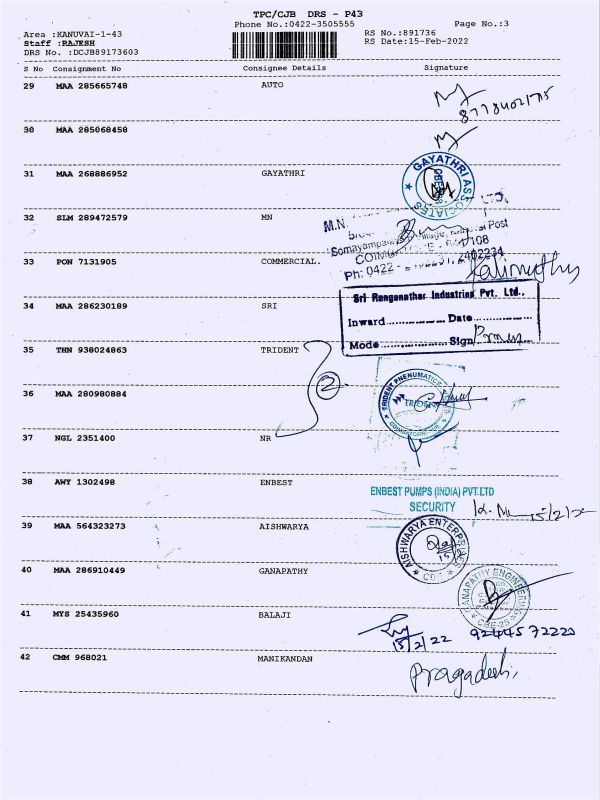 TPC/CJB DRS - P43
Phone No.:0422-3505555 Page No.:3
Area :KANUVAI-1-43 RS No.:891736
Staff :RAJESH RS Date:15-Feb-2022
DRS No. :DCJB89173603
S No Consignment No Consignee Details Signature
29 MAA 285665748 AUTO
30 MAA 285068458
31 MAA 268886952 GAYATHRI
GAYATHRI ASSOCIATES
32 SLM 289472579 MN
M.N. LTD.
Post
33 PON 7131905 COMMERCIAL.
Ph: 0422 -
Sri Ranganathar Industries Pvt. Ltd.,
34 MAA 286230189 SRI
Inward Date
Mode Sign
35 THN 938024863 TRIDENT
2
36 MAA 280980884
TRIDENT PNEUMATICS
TRIDENT
37 NGL 2351400 NR
38 AWY 1302498 ENBEST
ENBEST PUMPS (INDIA) PVT.LTD
SECURITY
39 MAA 564323273 AISHWARYA
AISHWARYA ENTERPRISES
40 MAA 286910449 GANAPATHY
GANAPATHY ENGINEERING
CBE-25
41 MYS 25435960 BALAJI
15/2/22 9244572220
42 CMM 968021 MANIKANDAN